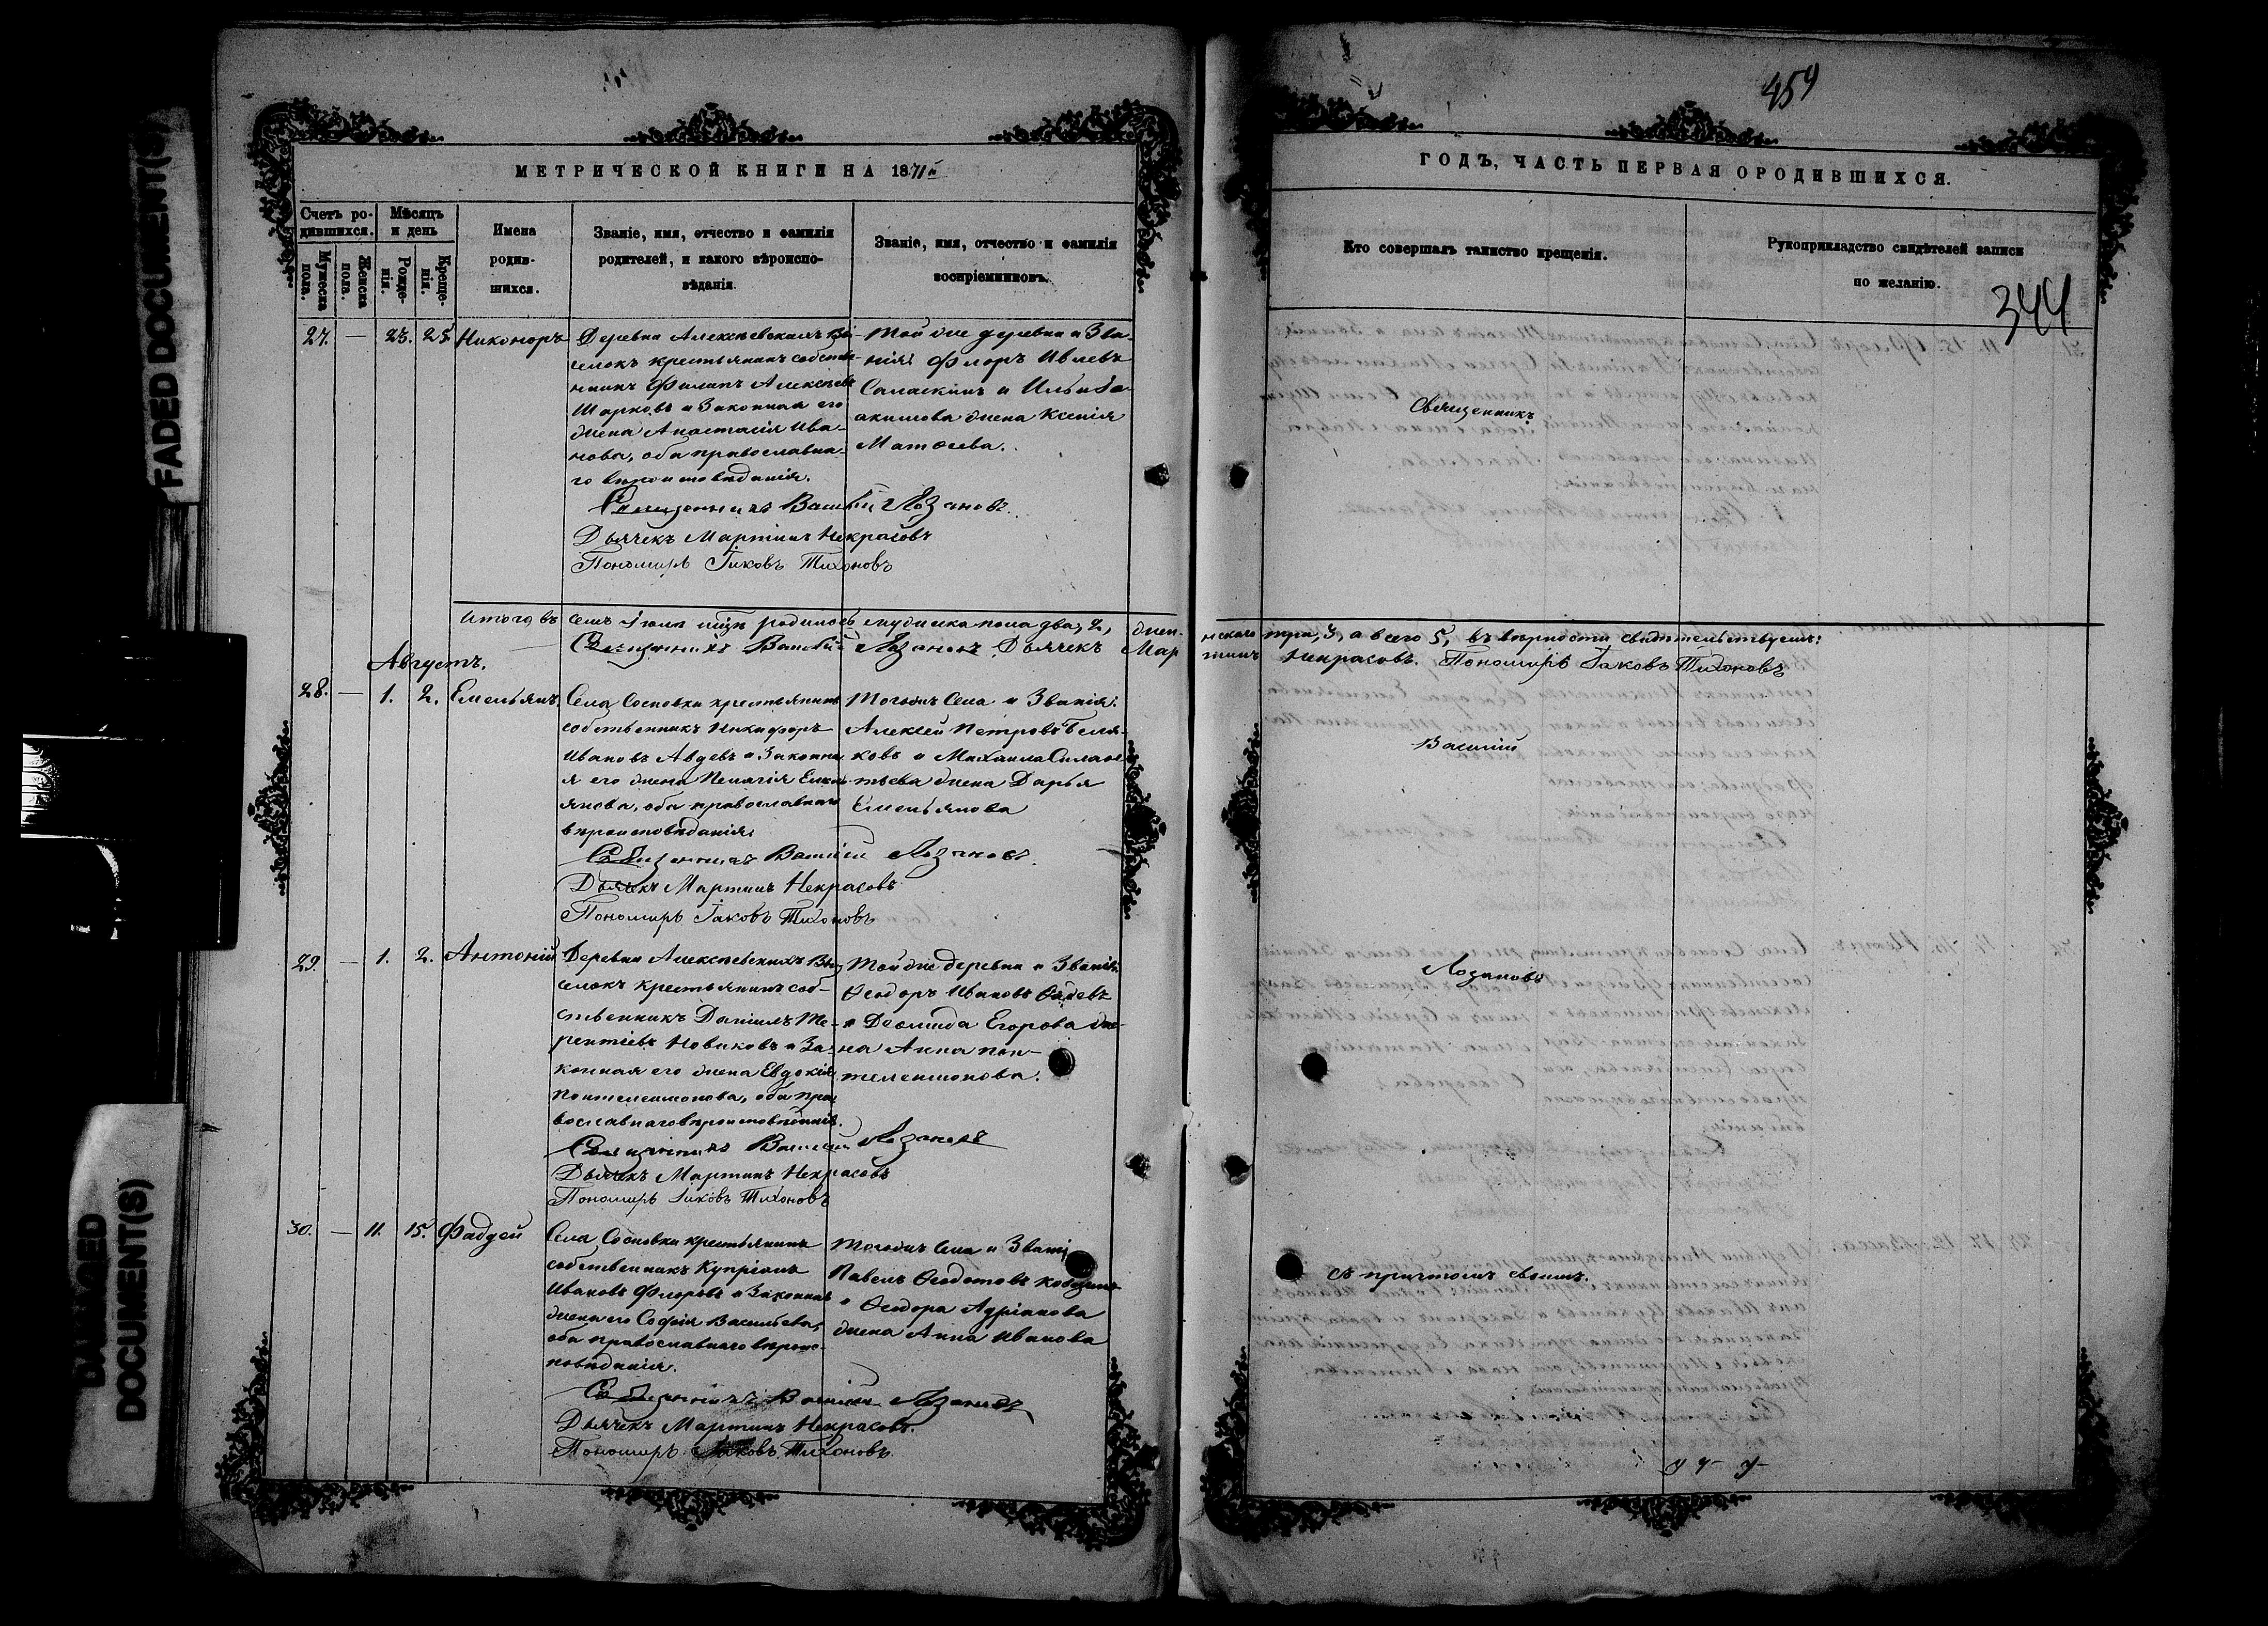 459
МЕТРИЧЕСКОЙ КНИГИ НА 1871й
ГОДЪ, ЧАСТЬ ПЕРВАЯ О РОДИВШИХСЯ.
Счетъ ро-
дившихся.
Мужеска
пола.
Женска
пола.
Мѣсяцъ
и день
Рожде-
нія.
Креще-
нія.
Имена
родив-
шихся.
Званіе, имя, отчество и фамилія
родителей, и какого вѣроиспо-
вѣданія.
Званіе, имя, отчество и фамилія
воспріемниковъ.
Кто совершалъ таинство крещенія.
Рукоприкладство свидѣтелей записи
по желанію.
344
27. — 23. 25. Никоноръ
Деревни Алексѣевскихъ Вы-
селокъ крестьянинъ собствен-
никъ Филипъ Алексѣевъ
Шарковъ и Законная его
жена Анастасія Ива-
нова, оба православна-
го вѣроисповѣданія.
Той же деревни и Зва-
нія: Флоръ Ивлевъ
Саласкинъ и Ильи За-
акимова жена Ксенія
Матѳеева.
Священникъ Василій Лозановъ.
Дьячекъ Мартинъ Некрасовъ
Пономарь Іаковъ Тихоновъ
Священникъ
Итого въ семъ Іюлѣ мцѣ родилось мужеска пола два, 2, жен-
скаго три, 3, а всего 5, въ вѣрности свидѣтельствуемъ:
Священникъ Василій Лозановъ Дьячекъ Мар
тинъ Некрасовъ. Пономарь Іаковъ Тихоновъ
Августъ.
28. — 1. 2. Емельянъ.
Села Сосновки крестьянинъ
собственникъ Никифоръ
Ивановъ Авдѣевъ и Законна
я его жена Пелагія Емель-
янова, оба православнаго
вѣроисповѣданія.
Тогожъ Села и Званія:
Алексѣй Петровъ Беля-
ковъ и Михаила Силан-
тьева жена Дарья
Емельянова
Священникъ Василій Лозановъ.
Дьячекъ Мартинъ Некрасовъ
Пономарь Іаковъ Тихоновъ
Василій
29. — 1. 2. Антоній
Деревни Алексѣевскихъ Вы-
селокъ крестьянинъ соб-
ственникъ Даніилъ Те-
рентіевъ Новиковъ и За-
конная его жена Евдокія
Пантелеимонова, оба пра-
вославнаго вѣроисповѣданія.
Той же деревни и Званія:
Ѳеодоръ Ивановъ
и Деомида Егорова же-
на Анна Пан-
телеимонова.
Священникъ Василій Лозановъ
Дьячекъ Мартинъ Некрасовъ
Пономарь Іаковъ Тихоновъ
Лозановъ
30. — 11. 15. Фаддей
Села Сосновки крестьянинъ
собственникъ Купріянъ
Ивановъ Флоровъ и Законная
жена его Софія Васильева,
оба православнаго вѣроис-
повѣданія.
Тогожъ Села и Званія
Павелъ Ѳеодотовъ
и Ѳеодора Адріанова
жена Анна Иванова
Священникъ Василій Лозановъ
Дьячекъ Мартинъ Некрасовъ.
Пономарь Іаковъ Тихоновъ
съ причтомъ своимъ.
FADED DOCUMENT(S)
DAMAGED
DOCUMENT(S)